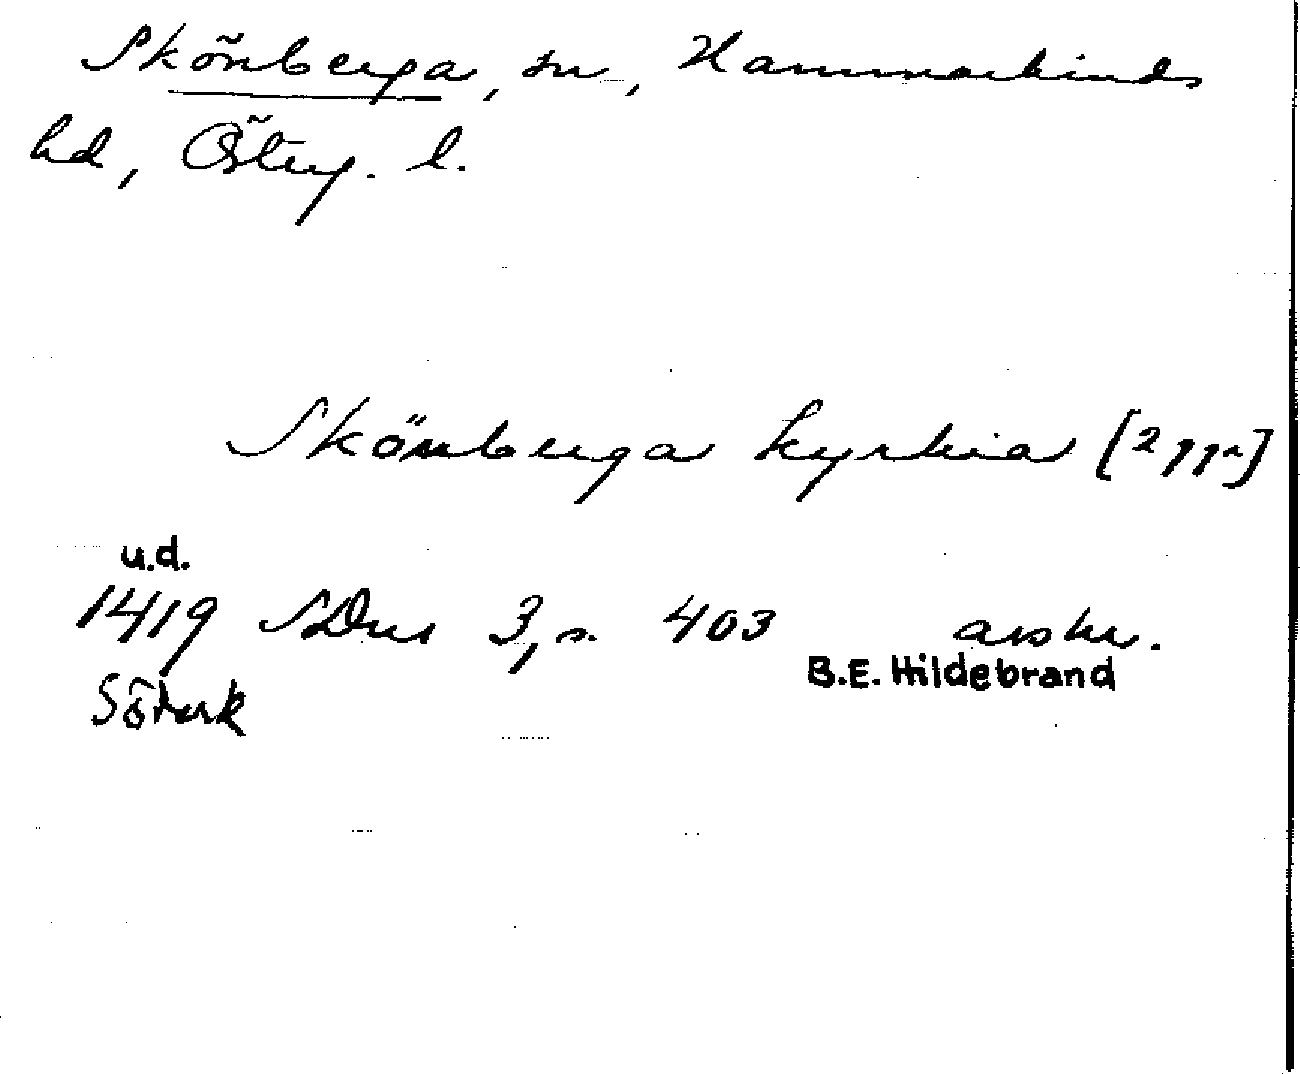 Skönberga, sn, Hammarkinds
hd, Österg. l.
Skönberga kyrkia [2 ggr]
u.d.
1419 SDns 3, s. 403 avskr.
B.E. Hildebrand